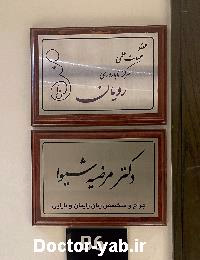 عضو
هیأت علمی
مرکز ناباروری
رویان
دکتر مرضیه شیوا
جراح و متخصص زنان، زایمان و نازایی
Doctor-yab.ir